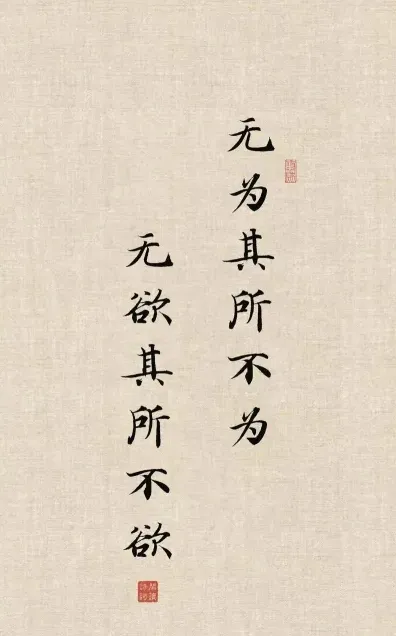 无为其所不为
无欲其所不欲